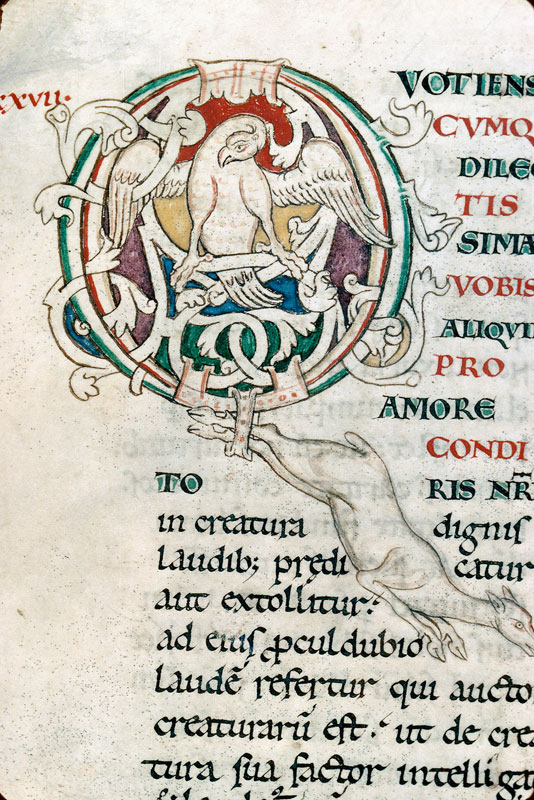 xxvii.
QVOTIENS
CVMQ
DILEC
TIS
SIMA
VOBIS
ALIQVI
PRO
AMORE
CONDI
TO RIS NR̅
in creatura dignis
laudib; prędi catur
aut extollitur:
ad eius ꝓculdubio
laudē refertur qui aucto
creaturarū est. ut de crea
tura sua factor intelligat